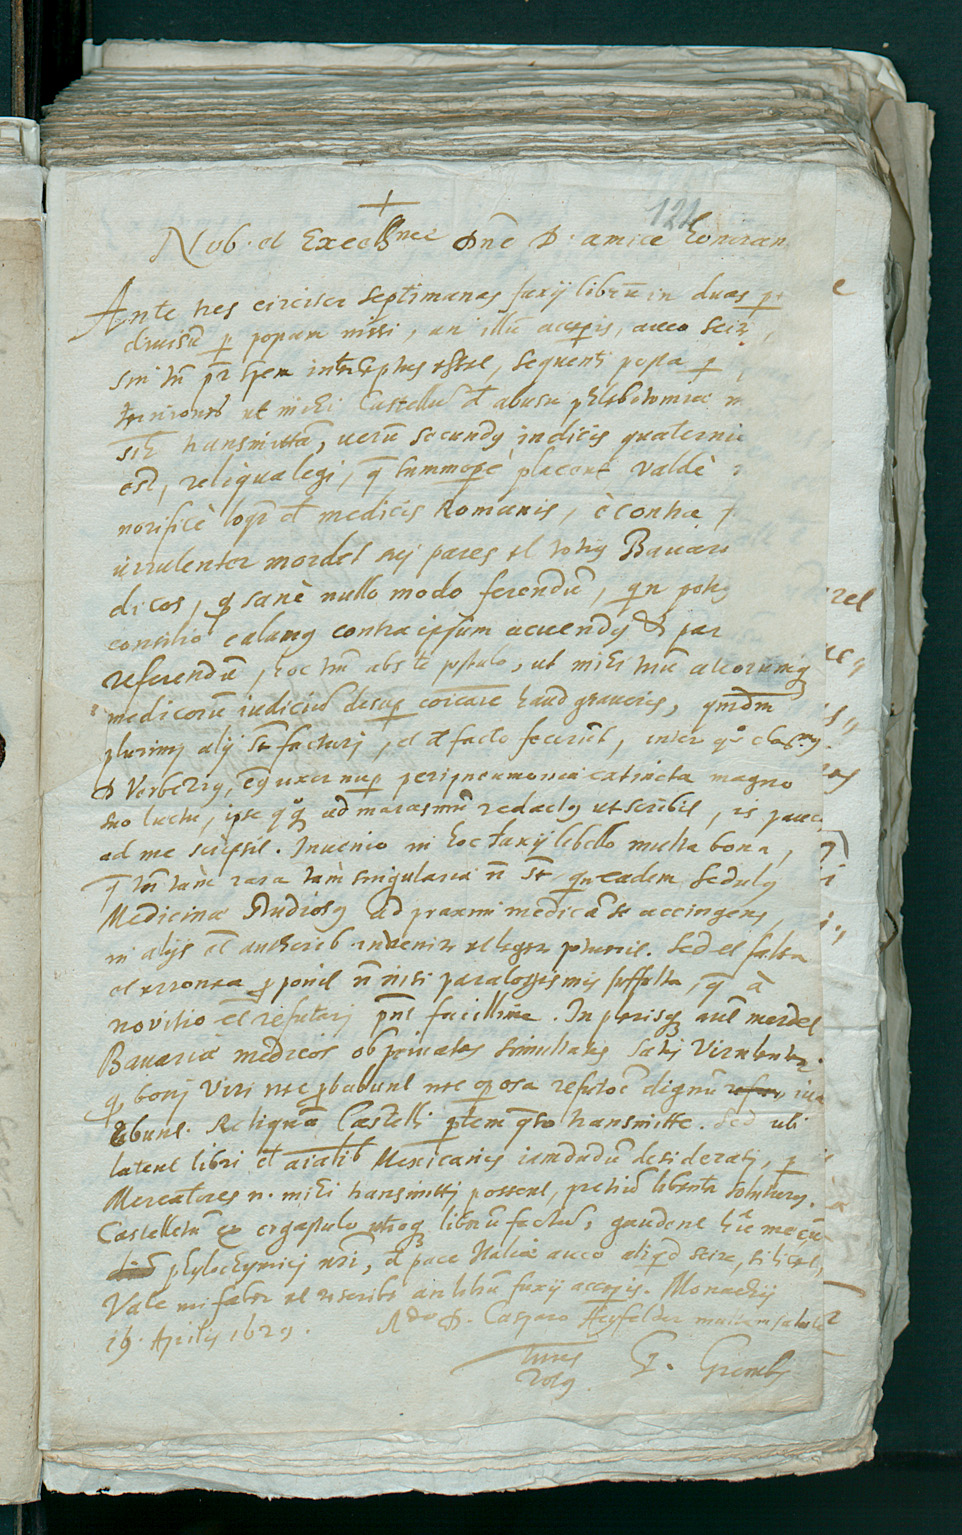 124
Nob. et Excellme Dne D. amice honoran
Ante tres circiter septimanas faxij librū in duas p
divisū p popam misi, an illū acceperis, aveo scire,
sin tn̄ pr̄ spem interceptus esset, sequenti posta p
ut mihi Castellū d̄ abusu phlebotomiæ
transmittā, uerū secundus indicis quaternio
est, reliqua legi, q̄ summopè placent valdè
norificè loqr̄ d̄ medicis Romanis, è contra
uirulenter mordet sui pares et totius Bavari
dicos, q̄ sanè nullo modo ferendū, qn potius
consilio calamus contra ipsum acuendus & par
referendū, hoc tn̄ abs te postulo, ut mihi tuū aliorumq
medicorū iudiciū desup cōicare haud graueris, quēadm
plurimi alij st̄ facturi, et d̄ facto fecerūt, inter qͦs clarsmꝯ
D Verberꝯ, cuꝯ uxor nup peripneumonia extincta magno
suo luctu, ipse qͦq ad marasmū redactus ut scribit, is pauca
ad me scripsit. Invenio in hoc faxij libello multa bona,
q̄ tn̄ tam rara tam singularia n̄ st̄ qn eadem sedulus
Medicinæ studiosus ad praxim medicā se accingens,
in alijs et authorib invenire et legere potuerit. Sed et falsa
et erronea pponit n̄ nisi paralogismis suffulta, q̄ à
novitio et refutari pn̄t facillime. In plerisq aut mordet
Bavariæ medicos ob privatas simultates satis virulenter.
q̄ boni viri nec pbabunt nec oposa refutoē dignū
bunt. Reliquā Castelli ptem qͣsͦ transmitte. Sed ubi
latent libri d̄ aīalib Mexicanis iamdudū desiderati, p
Mercatores n. mihi transmitti possent, pretiū libenter soluturus.
Castellum ex ergastulo utroq liberū factū, gaudent tūc mecū
phylochymici nr̄i, d̄ pace Italiæ aveo aliqd scire, si licet,
Vale mi faber et rescribe an librū faxij acceperis. Monachij
19. Aprilis 1629. Ado D. Casparo Heyfelder multam salute
tuus
totus G. Griembs